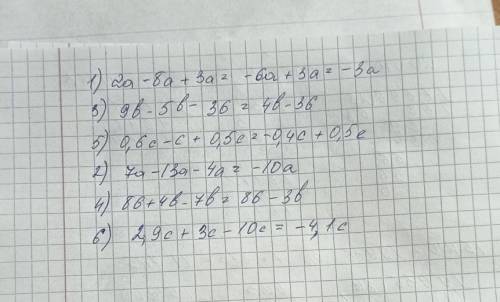 1) 2a - 8a + 3a = -6a + 3a = -3a
3) 9b - 5b - 36 = 4b - 36
5) 0,6c - c + 0,5c = -0,4c + 0,5c
2) 7a - 13a - 4a = -10a
4) 86 + 4b - 7b = 86 - 3b
6) 2,9c + 3c - 10c = -4,1c